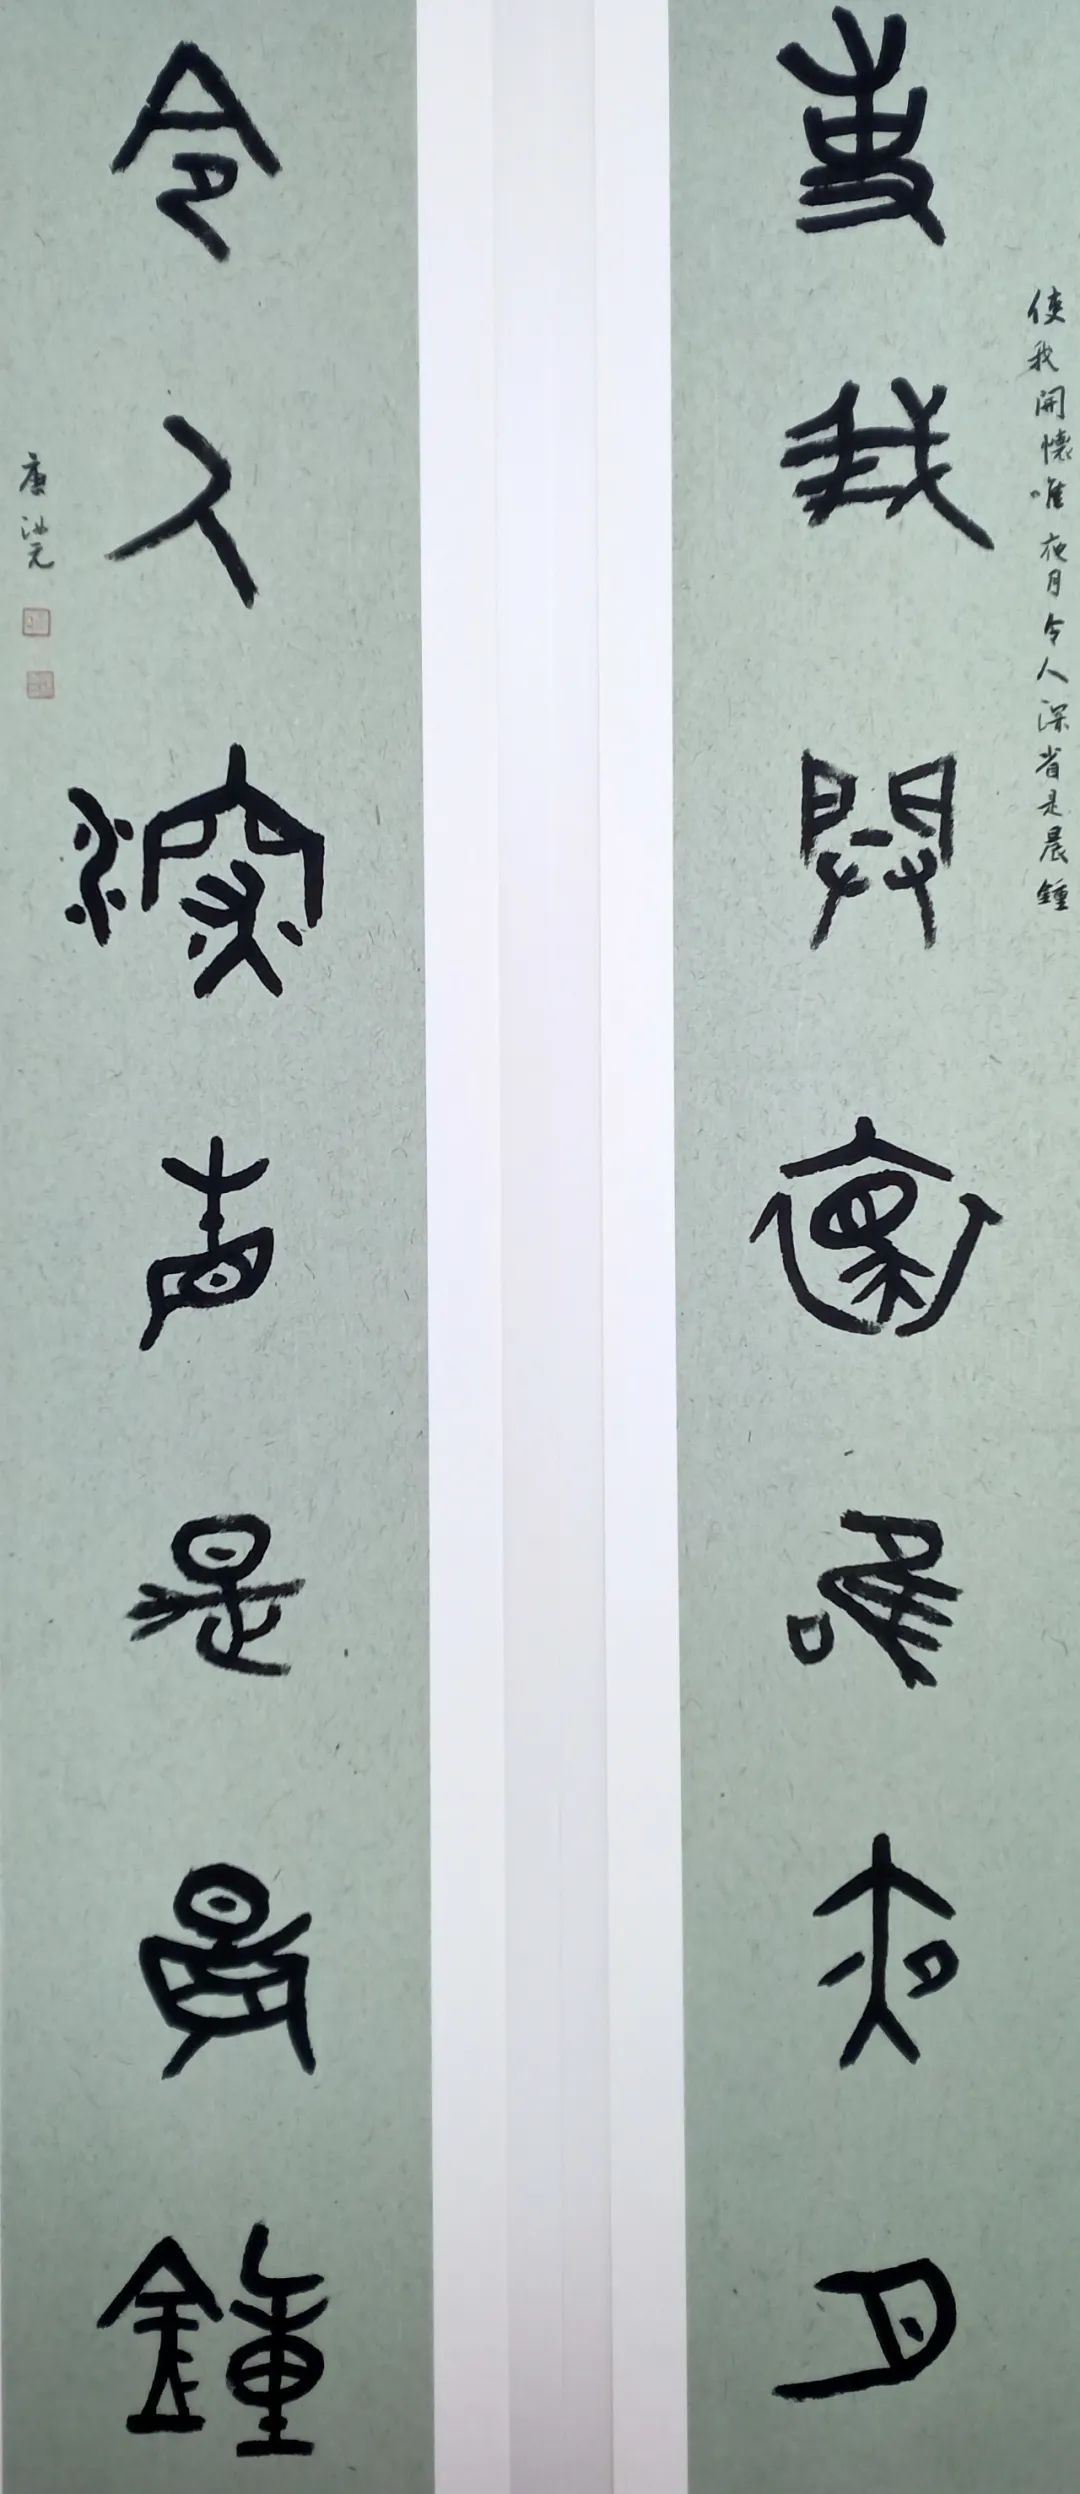 使我開懷唯夜月
令人深省是晨鐘
使我開懷唯夜月令人深省是晨鍾
唐浣